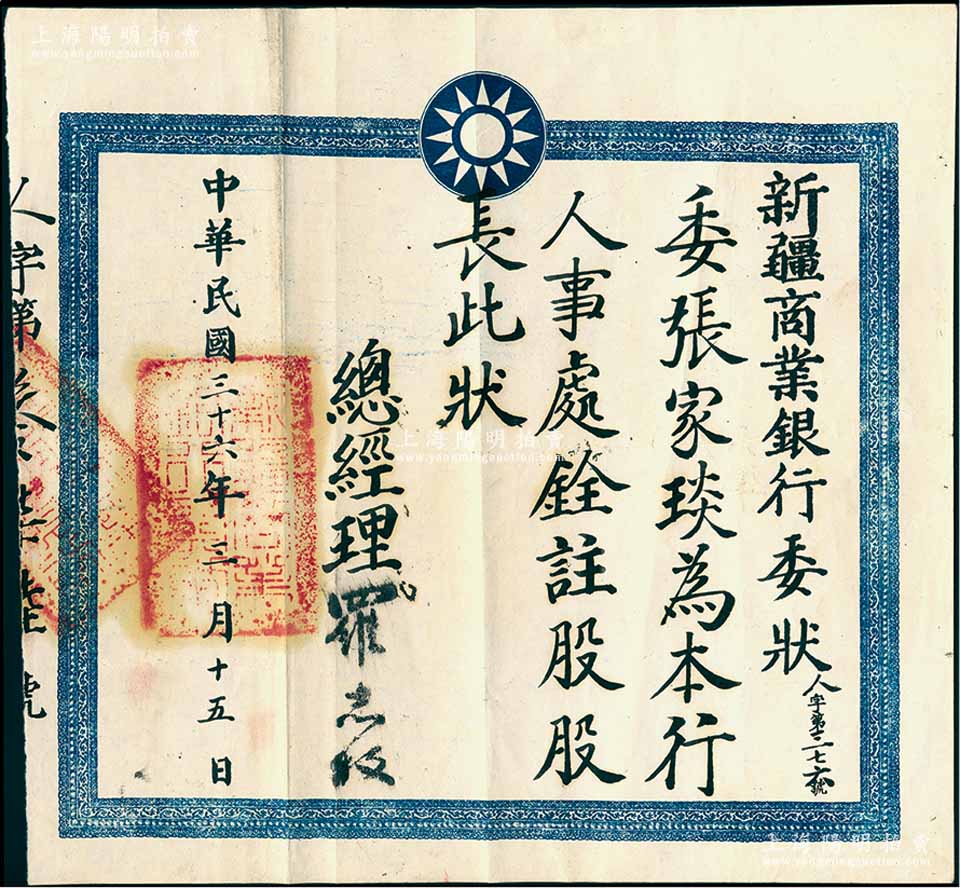 新疆商業銀行委狀
人字第二七六號
委張家琰為本行
人事處銓註股股
長此狀
總經理羅志枚
中華民國三十六年三月十五日
人字第
號
上海陽明拍賣
www.yangmingauction.com
上海陽明拍賣
www.yangmingauction.com
上海陽明拍賣
www.yangmingauction.com